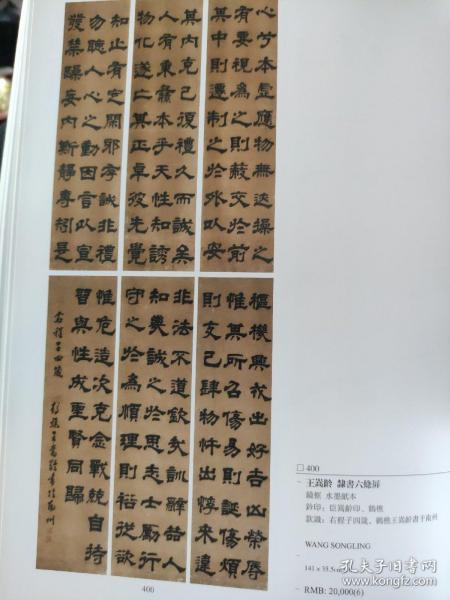 心兮本虛應物無迹操之
有要視為之則蔽交於前
其中則遷制之於外以安
其内克己復禮久而誠矣
人有秉彝本乎天性知誘
物化遂亡其正卓彼先覺
知止有定閑邪存誠非禮
勿聽人心之動因言以宣
發禁躁妄内斯靜專矧是
樞機興戎出好吉凶榮辱
惟其所召傷易則誕傷煩
則支己肆物忤出悖來違
非法不道欽哉訓辭哲人
知幾誠之於思志士勵行
守之於為順理則裕從欲
惟危造次克念戰兢自持
習與性成聖賢同歸
右程子四箴
鶴樵王嵩齡書於南州
400
□ 400
王嵩齡 隸書六條屏
鏡框 水墨紙本
鈐印：臣嵩齡印、鶴樵
款識：右程子四箴，鶴樵王嵩齡書于南州
WANG SONGLING
141 x 35.5cm
RMB: 20,000(6)
孔夫子旧书网